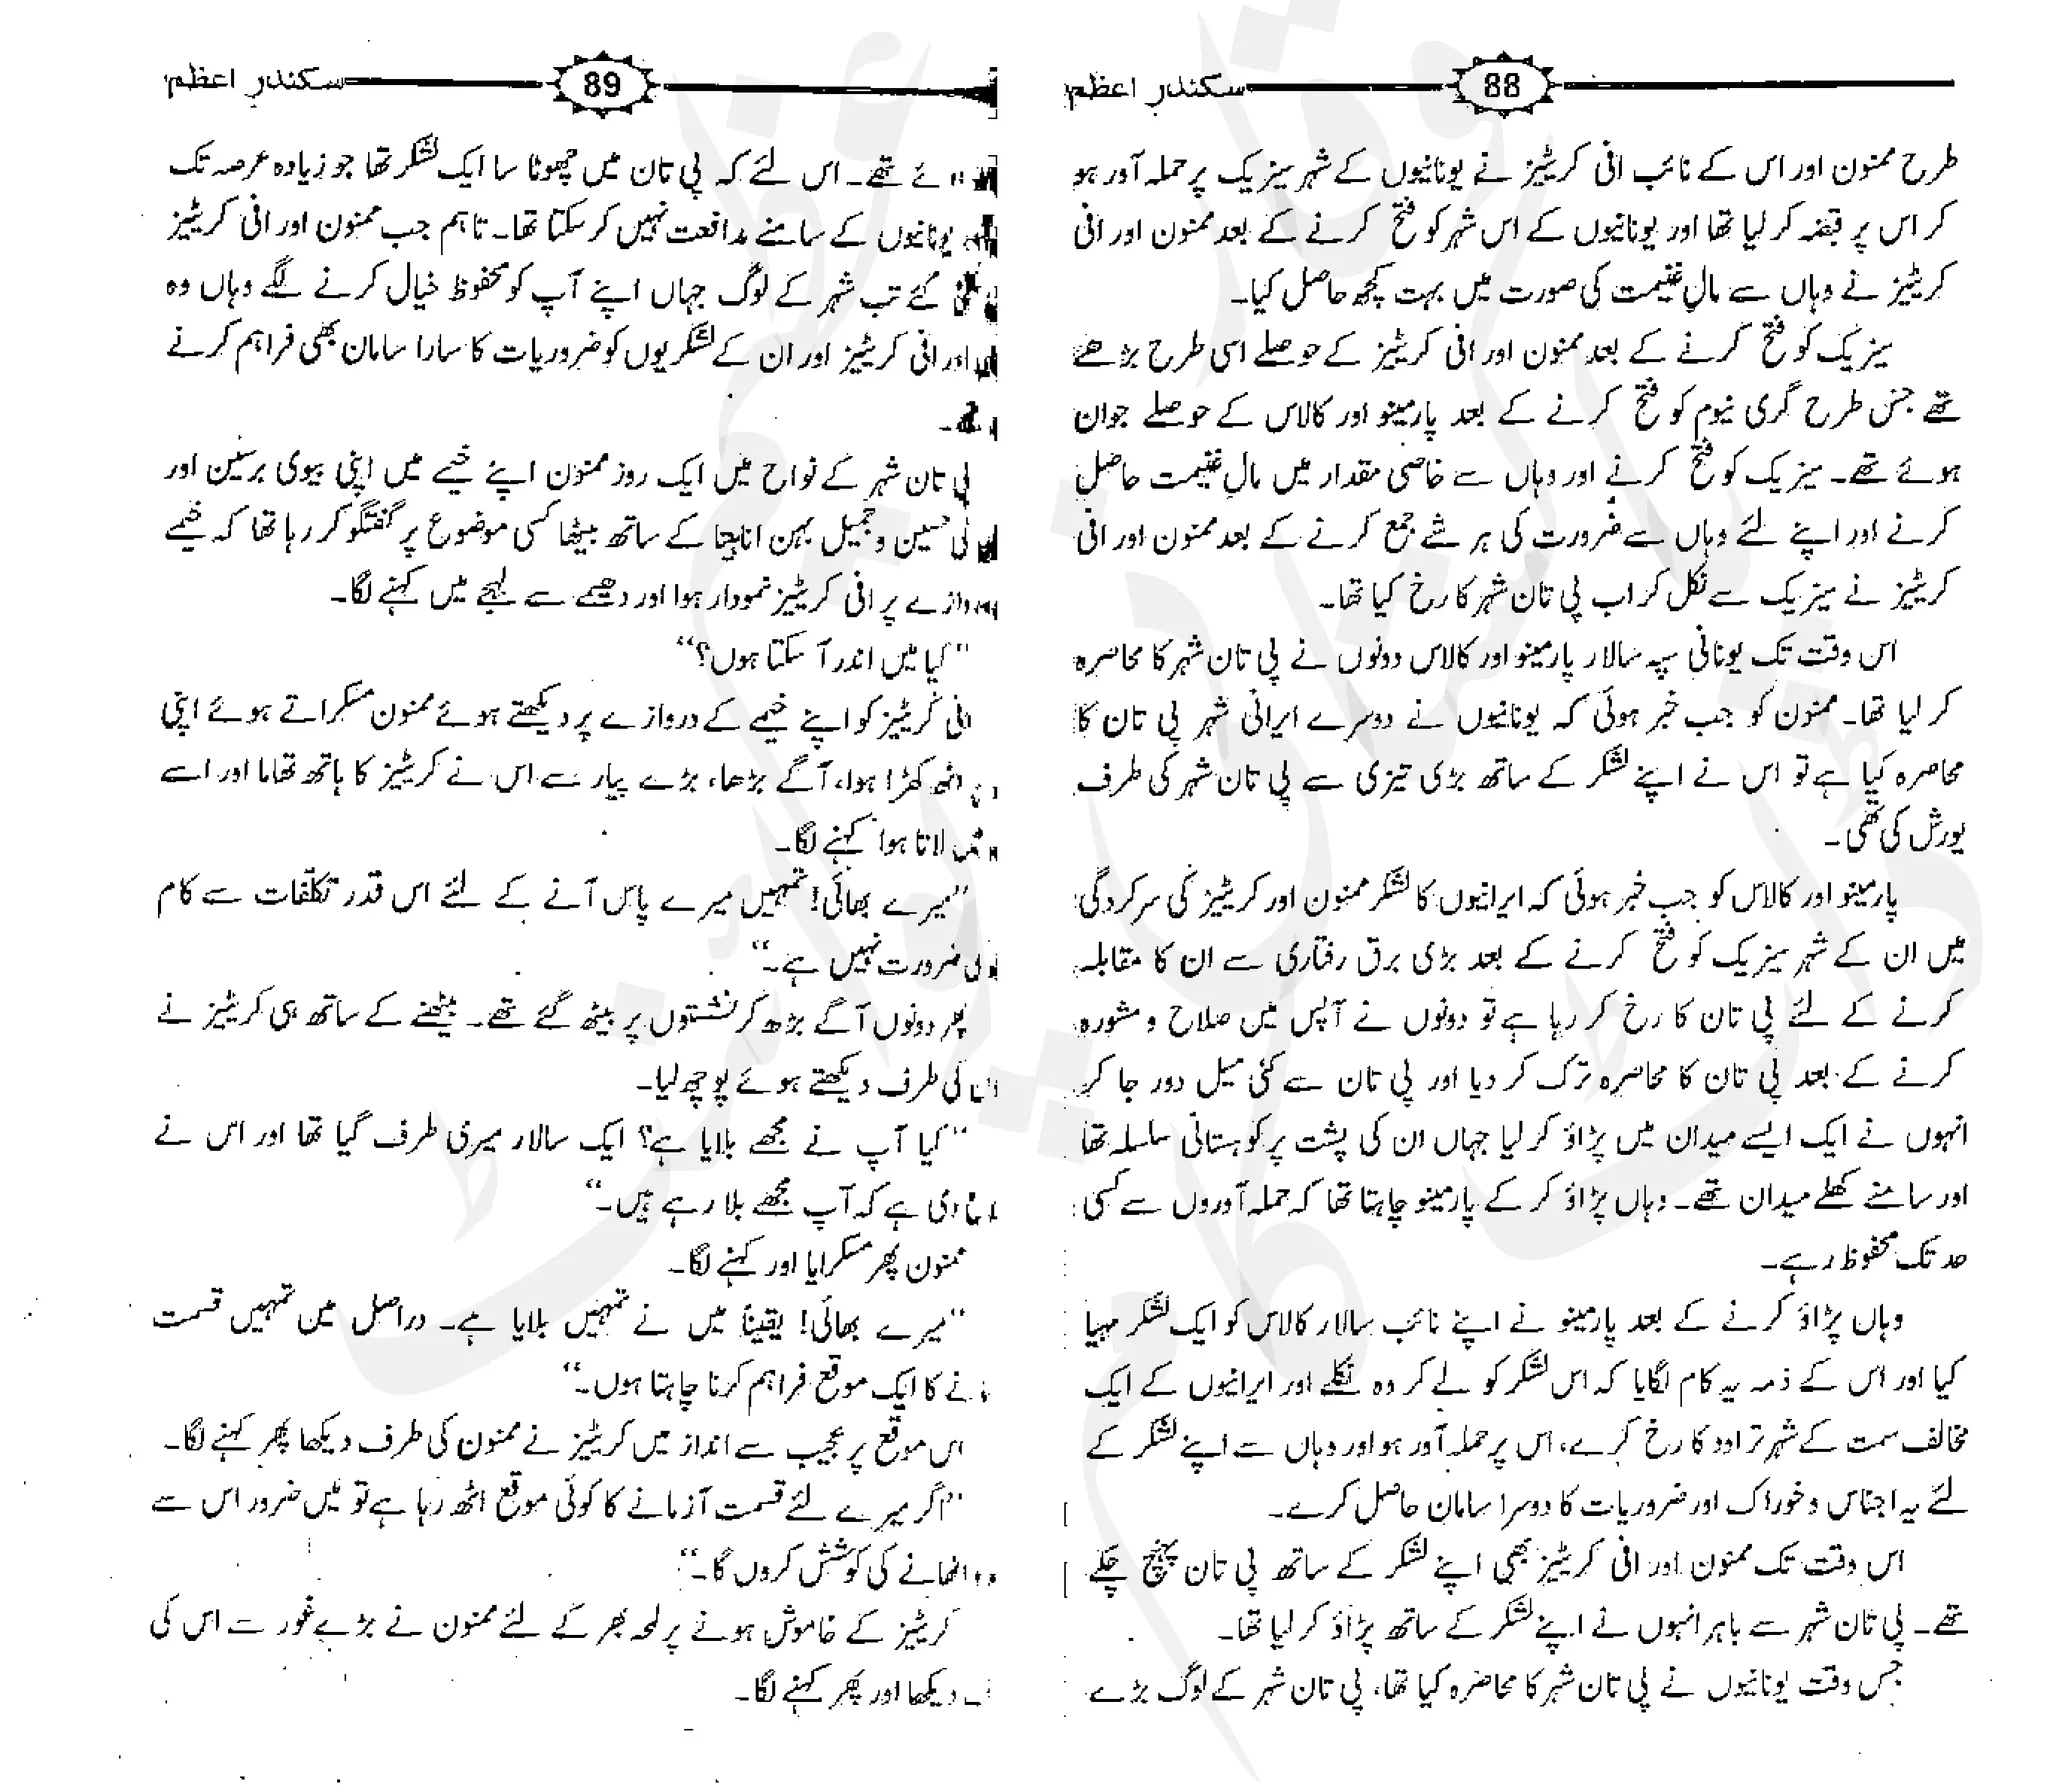 سکندرِ اعظم 88
طرح ممنون اور اس کے نائب افی کریٹیز نے یونانیوں کے شہر سیزیک پر حملہ آور ہو
کر اس پر قبضہ کر لیا تھا اور یونانیوں کے اس شہر کو فتح کرنے کے بعد ممنون اور افی
کریٹیز نے وہاں سے مالِ غنیمت کی صورت میں بہت کچھ حاصل کیا۔
سیزیک کو فتح کرنے کے بعد ممنون اور افی کریٹیز کے حوصلے اسی طرح بڑھے
تھے جس طرح گری نیوم کو فتح کرنے کے بعد پارمینو اور کالاس کے حوصلے جوان
ہوئے تھے۔ سیزیک کو فتح کرنے اور وہاں سے خاصی مقدار میں مالِ غنیمت حاصل
کرنے اور اپنے لئے وہاں سے ضرورت کی ہر شے جمع کرنے کے بعد ممنون اور افی
کریٹیز نے سیزیک سے نکل کر اب پی تان شہر کا رخ کیا تھا۔
اس وقت تک یونانی سپہ سالار پارمینو اور کالاس دونوں نے پی تان شہر کا محاصرہ
کر لیا تھا۔ ممنون کو جب خبر ہوئی کہ یونانیوں نے دوسرے ایرانی شہر پی تان کا
محاصرہ کیا ہے تو اس نے اپنے لشکر کے ساتھ بڑی تیزی سے پی تان شہر کی طرف
یورش کی تھی۔
پارمینو اور کالاس کو جب خبر ہوئی کہ ایرانیوں کا لشکر ممنون اور کریٹیز کی سرکردگی
میں ان کے شہر سیزیک کو فتح کرنے کے بعد بڑی برق رفتاری سے ان کا مقابلہ
کرنے کے لئے پی تان کا رخ کر رہا ہے تو دونوں نے آپس میں صلاح و مشورہ
کرنے کے بعد پی تان کا محاصرہ ترک کر دیا اور پی تان سے کئی میل دور جا کر
انہوں نے ایک ایسے میدان میں پڑاؤ کر لیا جہاں ان کی پشت پر کوہستانی سلسلہ تھا
اور سامنے کھلے میدان تھے۔ وہاں پڑاؤ کر کے پارمینو چاہتا تھا کہ حملہ آوروں سے کسی
حد تک محفوظ رہے۔
وہاں پڑاؤ کرنے کے بعد پارمینو نے اپنے نائب سالار کالاس کو ایک لشکر مہیا
کیا اور اس کے ذمہ یہ کام لگایا کہ اس لشکر کو لے کر وہ نکلے اور ایرانیوں کے ایک
مخالف سمت کے شہر تراود کا رخ کرے، اس پر حملہ آور ہو اور وہاں سے اپنے لشکر کے
لئے یہ اجناس و خوراک اور ضروریات کا دوسرا سامان حاصل کرے۔
اس وقت تک ممنون اور افی کریٹیز بھی اپنے لشکر کے ساتھ پی تان پہنچ چکے
تھے۔ پی تان شہر سے باہر انہوں نے اپنے لشکر کے ساتھ پڑاؤ کر لیا تھا۔
جس وقت یونانیوں نے پی تان شہر کا محاصرہ کیا تھا، پی تان شہر کے لوگ بڑے
سکندرِ اعظم 89
تھے۔ اس لئے کہ پی تان میں چھوٹا سا ایک لشکر تھا جو زیادہ عرصہ تک
یونانیوں کے سامنے مدافعت نہیں کر سکتا تھا۔ تاہم جب ممنون اور افی کریٹیز
گئے تب شہر کے لوگ جہاں اپنے آپ کو محفوظ خیال کرنے لگے وہاں وہ
اور افی کریٹیز اور ان کے لشکریوں کو ضروریات کا سارا سامان بھی فراہم کرنے
پی تان شہر کے نواح میں ایک روز ممنون اپنے خیمے میں اپنی بیوی برسین اور
حسین و جمیل بہن اناہیتا کے ساتھ بیٹھا کسی موضوع پر گفتگو کر رہا تھا کہ خیمے
پر افی کریٹیز نمودار ہوا اور دھیمے سے لہجے میں کہنے لگا۔
”کیا میں اندر آ سکتا ہوں؟“
افی کریٹیز کو اپنے خیمے کے دروازے پر دیکھتے ہوئے ممنون مسکراتے ہوئے اپنی
اٹھ کھڑا ہوا، آگے بڑھا، بڑے پیار سے اس نے کریٹیز کا ہاتھ تھاما اور اسے
لاتا ہوا کہنے لگا۔
”میرے بھائی! تمہیں میرے پاس آنے کے لئے اس قدر تکلفات سے کام
ضرورت نہیں ہے۔“
پھر دونوں آگے بڑھ کر نشستوں پر بیٹھ گئے تھے۔ بیٹھنے کے ساتھ ہی کریٹیز نے
کی طرف دیکھتے ہوئے پوچھ لیا۔
”کیا آپ نے مجھے بلایا ہے؟ ایک سالار میری طرف گیا تھا اور اس نے
دی ہے کہ آپ مجھے بلا رہے ہیں۔“
ممنون پھر مسکرایا اور کہنے لگا۔
”میرے بھائی! یقیناً میں نے تمہیں بلایا ہے۔ دراصل میں تمہیں قسمت
نے کا ایک موقع فراہم کرنا چاہتا ہوں۔“
اس موقع پر عجیب سے انداز میں کریٹیز نے ممنون کی طرف دیکھا پھر کہنے لگا۔
”اگر میرے لئے قسمت آزمانے کا کوئی موقع اٹھ رہا ہے تو میں ضرور اس سے
اٹھانے کی کوشش کروں گا۔“
کریٹیز کے خاموش ہونے پر لمحہ بھر کے لئے ممنون نے بڑے غور سے اس کی
دیکھا اور پھر کہنے لگا۔